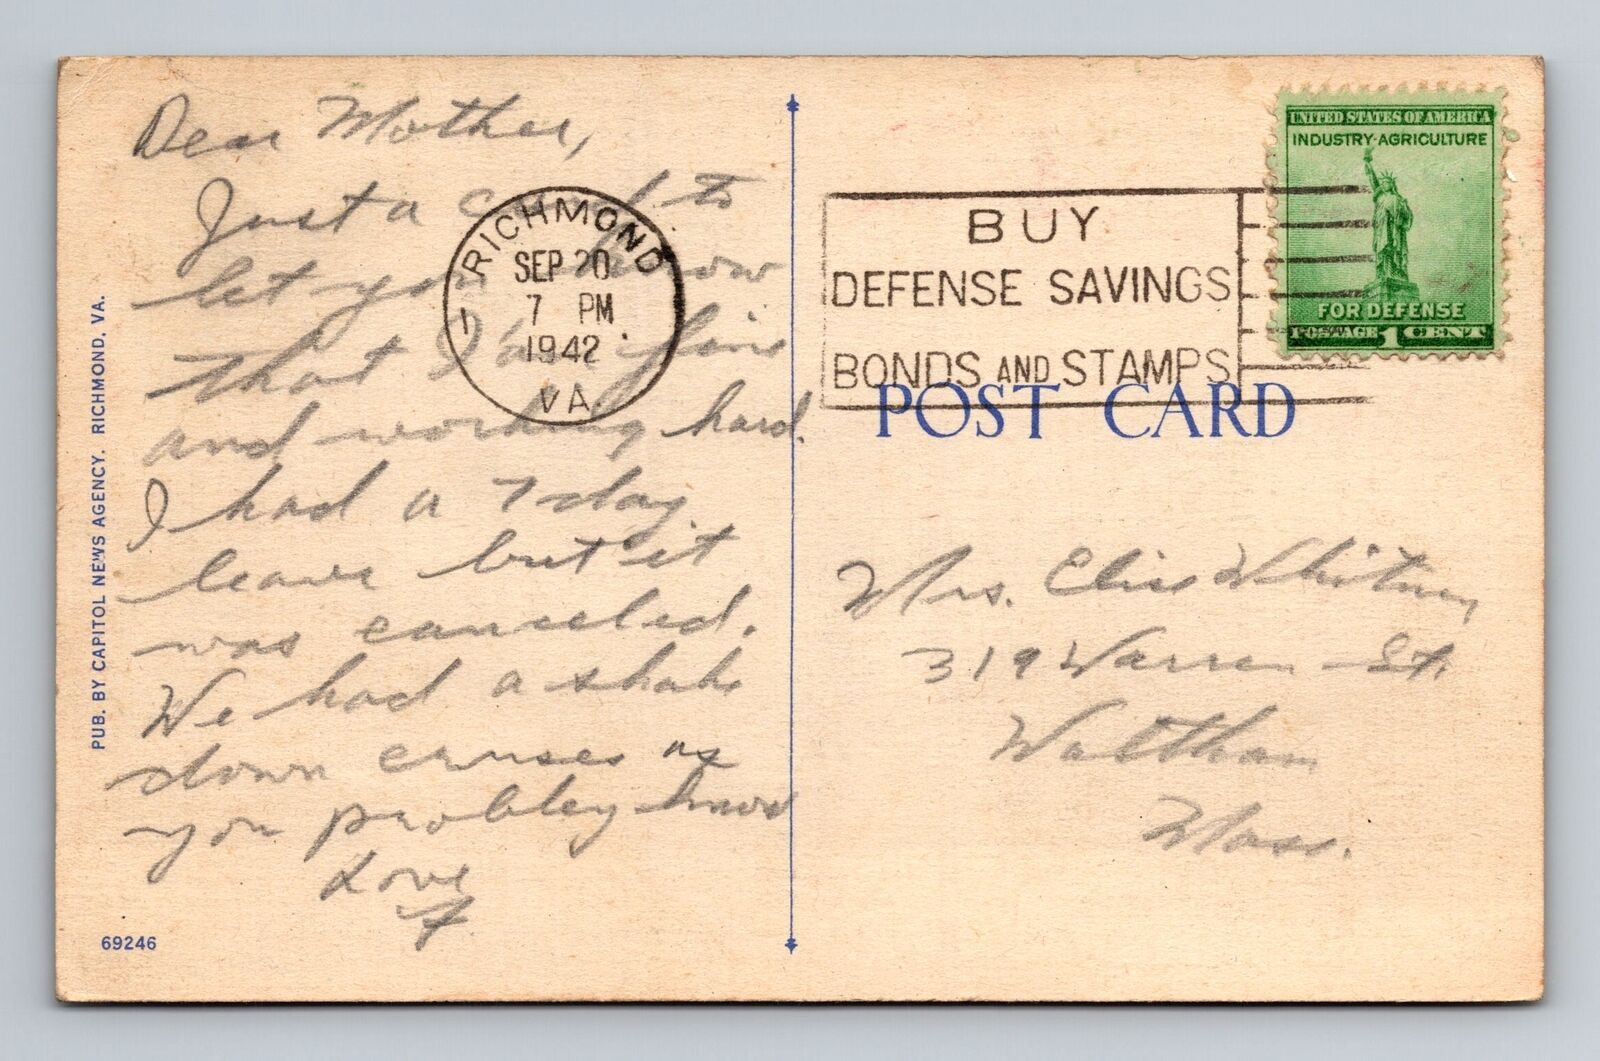 Dear Mother,
Just a card to
let you know
that I am fine
and working hard.
I had a 7 day
leave but it
was canceled.
We had a shake
down cruses as
you probley know
Love
F
RICHMOND
SEP 20
7 PM
1942
VA.
1
BUY
DEFENSE SAVINGS
BONDS AND STAMPS
UNITED STATES OF AMERICA
INDUSTRY-AGRICULTURE
FOR DEFENSE
POSTAGE 1 CENT
POST CARD
Mrs. Elise Whitney
319 Warren St.
Waltham
Mass.
PUB. BY CAPITOL NEWS AGENCY, RICHMOND, VA.
69246